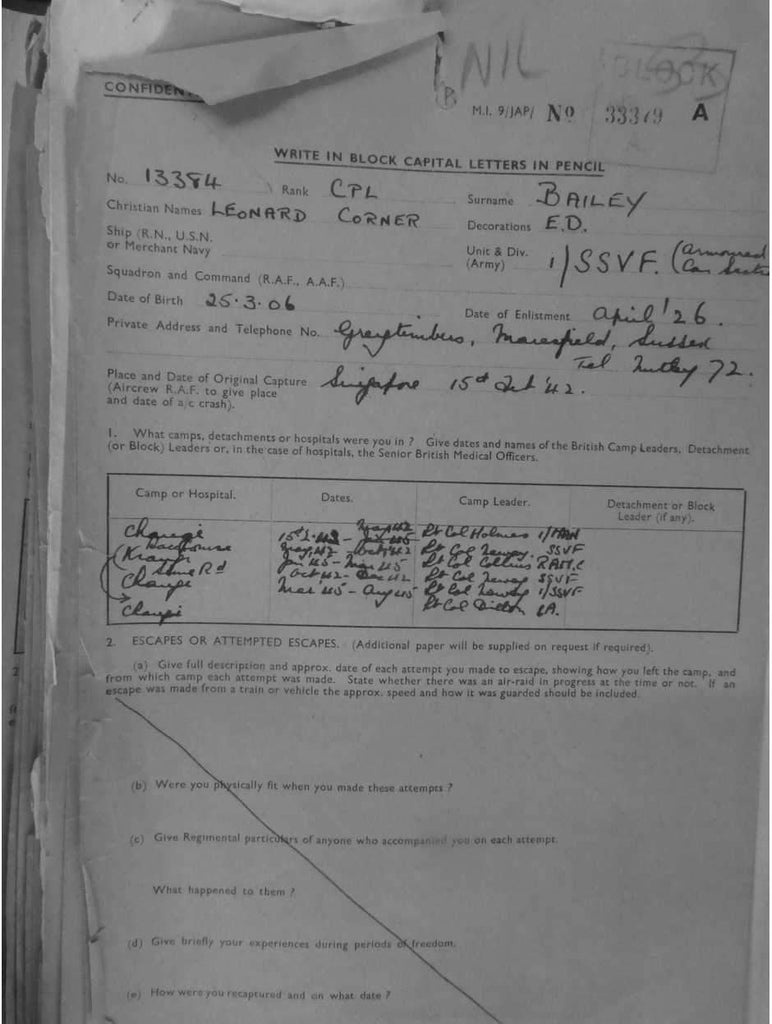 NIL
CONFIDEN
M.I. 9/JAP/ No 333 9 A
WRITE IN BLOCK CAPITAL LETTERS IN PENCIL
No. 13384 Rank CPL Surname BAILEY
Christian Names LEONARD CORNER Decorations E.D.
Ship (R.N., U.S.N. or Merchant Navy
Unit & Div. (Army) 1/SSVF. (Armoured Car
Squadron and Command (R.A.F., A.A.F.)
Date of Birth 25.3.06 Date of Enlistment April '26.
Private Address and Telephone No. Greytimbers, Maresfield, Sussex
Tel Nutley 72.
Place and Date of Original Capture Singapore 15th Feb '42.
(Aircrew R.A.F. to give place
and date of a/c crash).
1. What camps, detachments or hospitals were you in ? Give dates and names of the British Camp Leaders, Detachment
(or Block) Leaders or, in the case of hospitals, the Senior British Medical Officers.
Camp or Hospital. Dates. Camp Leader. Detachment or Block
Leader (if any).
Changi Lt Col Holmes
Lt Col Newey. SSVF
Kranji Jan 45 - Mar 45 Lt Col Collins RAMC
Rd Oct 42 - Dec 42 Lt Col Newey SSVF
Changi Lt Col Newey 1/SSVF
Changi Mar 45 - Aug 45 Lt Col Dillon IA.
2. ESCAPES OR ATTEMPTED ESCAPES. (Additional paper will be supplied on request if required).
(a) Give full description and approx. date of each attempt you made to escape, showing how you left the camp, and
from which camp each attempt was made. State whether there was an air-raid in progress at the time or not. If an
escape was made from a train or vehicle the approx. speed and how it was guarded should be included.
(b) Were you physically fit when you made these attempts ?
(c) Give Regimental particulars of anyone who accompanied you on each attempt.
What happened to them ?
(d) Give briefly your experiences during periods of freedom.
(e) How were you recaptured and on what date ?